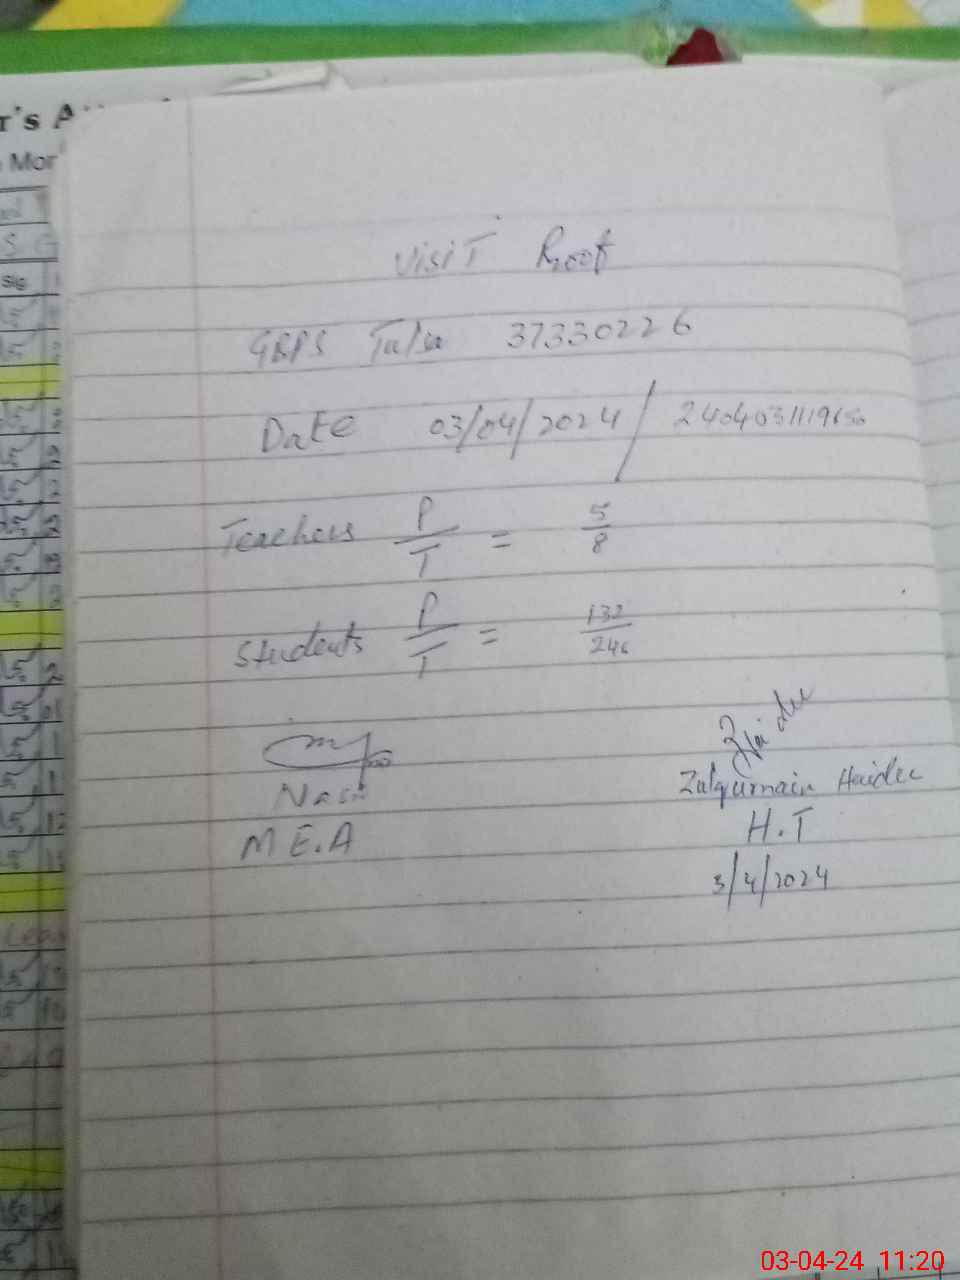 Visit Proof
GBPS Talsu 37330226
Date 03/04/2024 / 2404031119650
Teachers P/T = 5/8
Students P/T = 132/246
Nasir
M E.A
Haider
Zulqurnain Haider
H.T
3/4/2024
r's A
Mor
sig
03-04-24 11:20